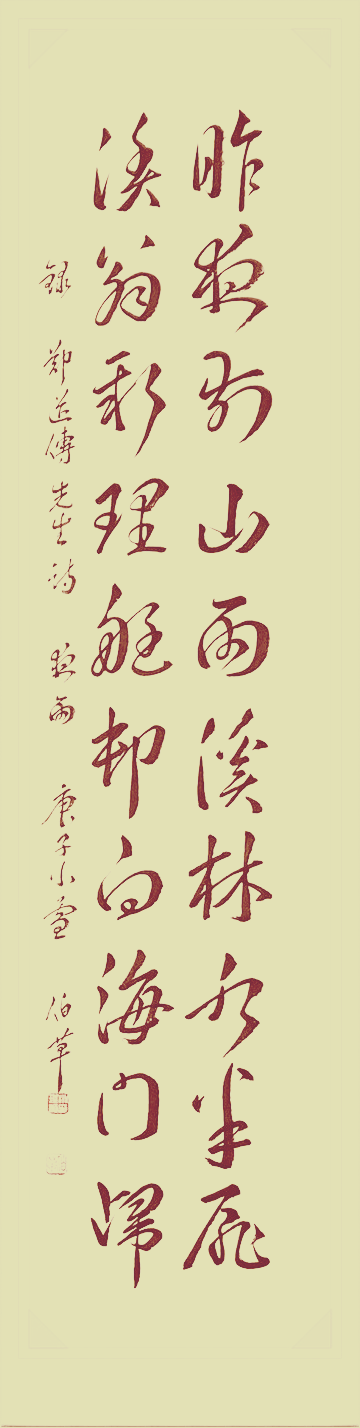 昨夜前山雨溪林水半扉
溪翁新理艇却向海门歸
録 郑道傳先生诗 夜雨 庚子小雪 伯草